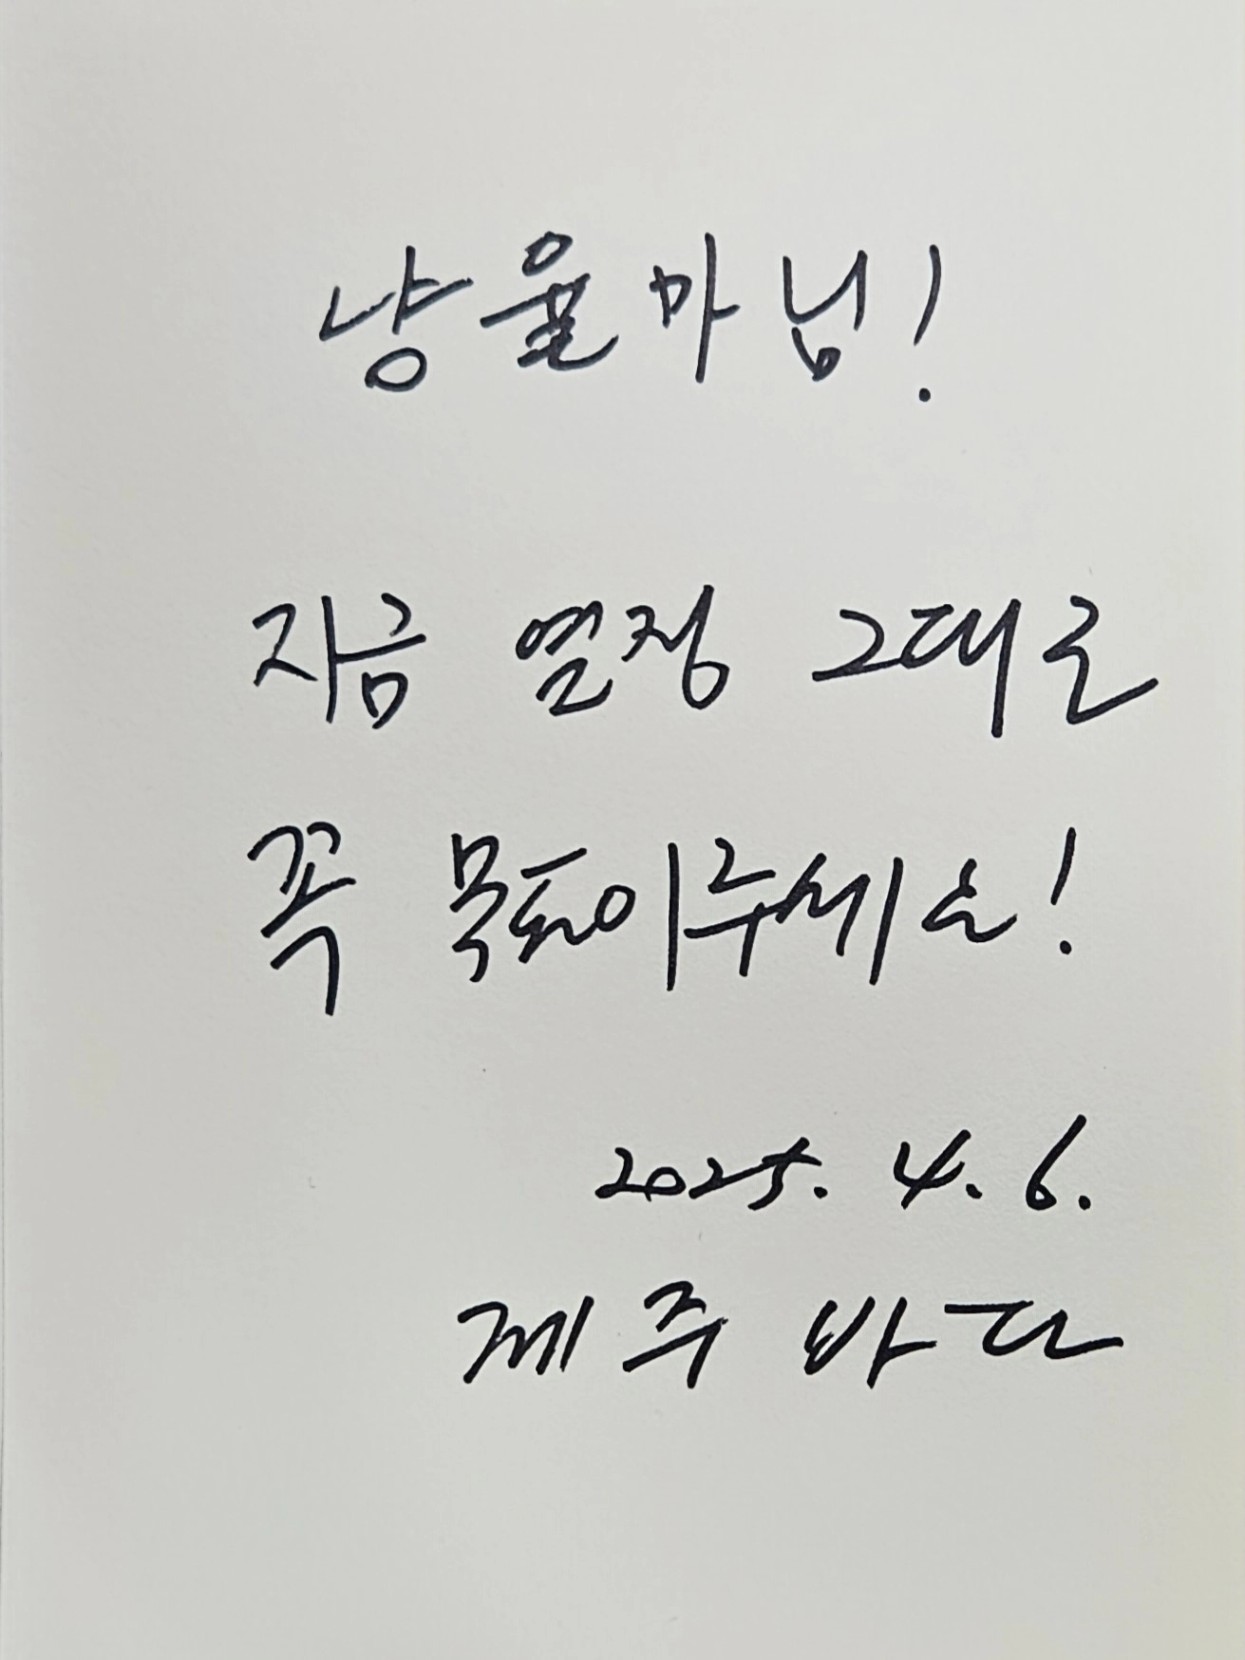 냥율마님!
지금 열정 그대로
꼭 보여주세요!
2025. 4. 6.
제주 바다